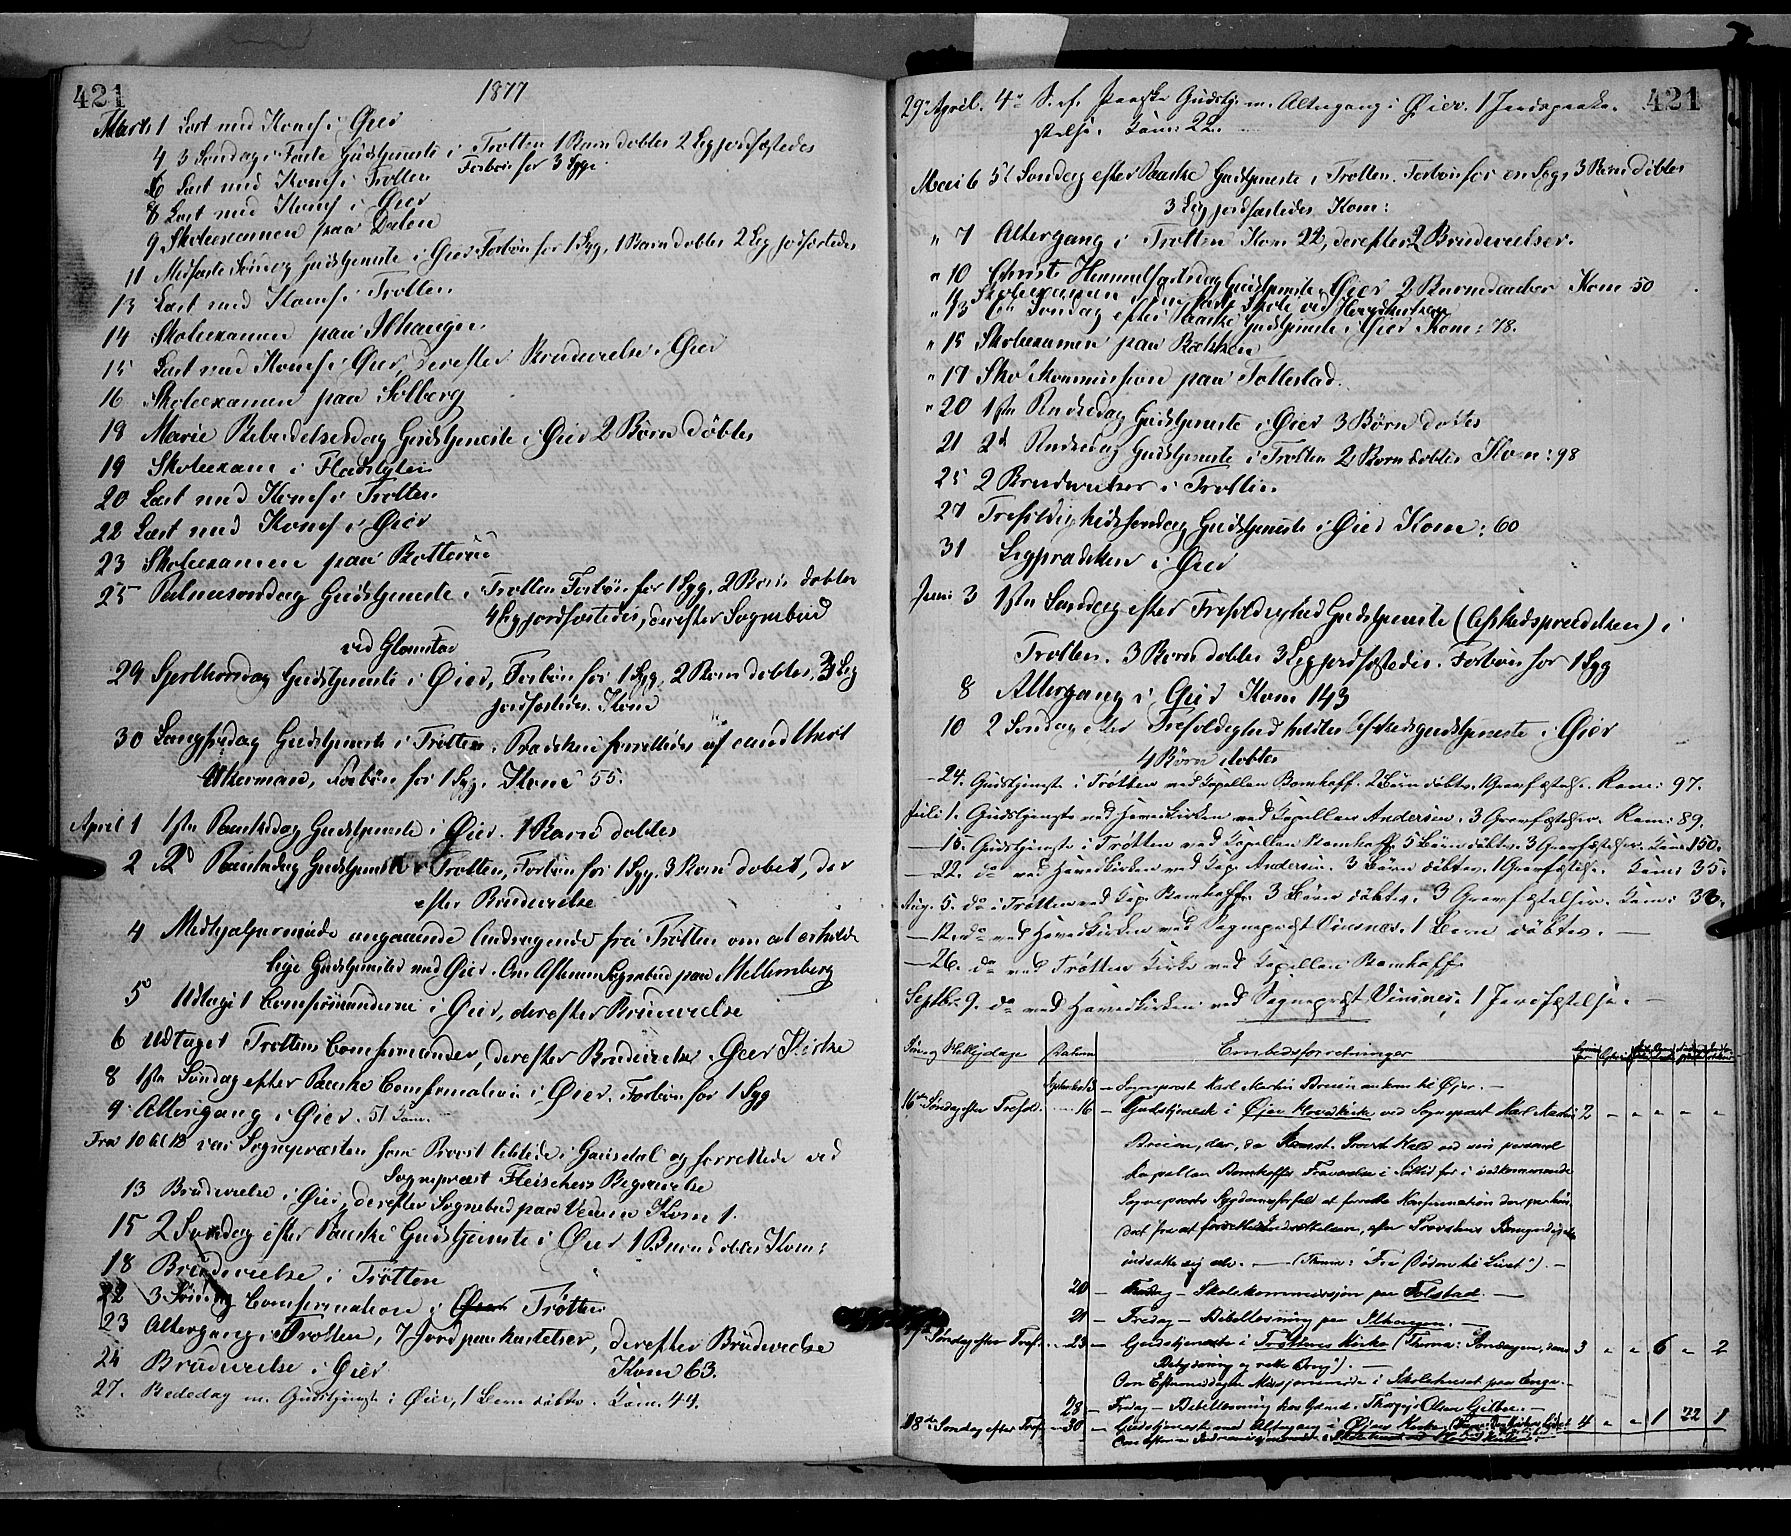 421
1877
Marts 1 Læst med Konf i Øier
4 3 Søndag i Faste Gudstjeneste i Trøtten 1 Barn døbtes 2 Lig jordfæstedes
Forbøn for 3 Syge
6 Læst med Konf i Trøtten
8 Læst med Konf i Øier
9 Skoleexamen paa Dalen
11 Midfaste Søndag Gudstjeneste i Øier Forbøn for 1 Syg, 1 Barn døbtes 2 Lig jordfæstedes
13 Læst med Konf i Trøtten
14 Skoleexamen paa Ilhaugen
15 Læst med Konf i Øier, derefter Brudevielse i Øier
16 Skoleexamen paa Solberg
18 Marie Bebudelsesdag Gudstjeneste i Øier 2 Børn døbtes
19 Skoleexam i
20 Læst med Konf i Trøtten
22 Læst med Konf i Øier
23 Skoleexamen paa
25 Palmesøndag Gudstjeneste i Trøtten Forbøn for 1 Syg, 2 Børn døbtes
4 Lig jordfæstedes, derefter Sognebud
ved Glomstad
29 Skjærthorsdag Gudstjeneste i Øier, Forbøn for 1 Syg, 2 Børn døbtes, 3 Lig
jordfæstedes. Kom
30 Langfredag Gudstjeneste i Trøtten, Prædiken forrettedes af cand theol
Akerman, Forbøn for 1 Syg. Kom 55.
April 1 1ste Paaskedag Gudstjeneste i Øier. 1 Barn døbtes
2 2d Paaskedag Gudstjeneste i Trøtten, Forbøn for 1 Syg. 3 Børn døbt, der
efter Brudevielse
4 Medhjælpermøde angaaende Andragende fra Trøtten om at erholde
lige Gudstjenester med Øier. Om Aftenen Sognebud paa Mellemberg
5 Udtaget Comfirmanderne i Øier, derefter Brudevielse
6 Udtaget Trøttens Comfirmander, derefter Brudevielse i Øier Kirke
8 1ste Søndag efter Paaske Comfirmation i Øier. Forbøn for 1 Syg
9 Altergang i Øier. 51 Kom.
Fra 10 til 12 var Sognepræsten som Provst tilstede i Gausdal og forrettede ved
Sognepræst Fleischers Begravelse
13 Brudevielse i Øier, derefter Sognebud paa Kom 1.
15 2 Søndag efter Paaske Gudstjeneste i Øier 1 Barn døbtes Kom:
18 Brudevielse i Trøtten
22 3 Søndag Comfirmation i Trøtten
23 Altergang i Trøtten, 7 Jordpaakastelser, derefter Brudevielse
24 Brudevielse i Øier Kom 63.
27. Bededag m. Gudstjeneste i Øier, 1 Barn døbtes. Kom. 44.
421
29de April. 4de S. ef. Paaske Gudstj. m. Altergang i Øier. 1 Jordpaaka-
stelse. Kom: 22.
Mai 6 5te Søndag efter Paaske Gudstjeneste i Trøtten. Forbøn for en Syg, 3 Børn døbtes
3 Lig jordfæstedes. Kom:
" 7 Altergang i Trøtten Kom 22, derefter 2 Brudevielser.
" 10 Christi Himmelfartsdag Gudstjeneste i Øier 2 Barnedaaber Kom 50
11 Skoleexamen i den faste Skole ved
" 13 6te Søndag efter Paaske Gudstjeneste i Øier Kom: 78.
" 15 Skoleexamen paa
" 17 Skolekommission paa Tollestad.
" 20 1ste Pindsedag Gudstjeneste i Øier 3 Børn døbtes
21 2d Pindsedag Gudstjeneste i Trøtten 2 Børn døbtes Kom: 98
25 2 Brudevielser i Trøtten
27 Trefoldighedssøndag Gudstjeneste i Øier Kom: 60
31 Ligprædiken i Øier
Juni 3 1ste Søndag efter Trefoldighed Gudstjeneste (Afskedsprædiken) i
Trøtten. 3 Børn døbtes 3 Lig jordfæstedes. Forbøn for 1 Syg
8 Altergang i Øier Kom 143
10 2 Søndag efter Trefoldighed holdtes Afskedsgudstjeneste i Øier
4 Børn døbtes
— 24. Gudstjeneste i Trøtten ved Kapellan Bomhoff. 2 Børn døbtes. 1 Gravfæstelse. Kom: 97.
Juli 1. Gudstjeneste ved Hovedkirken ved Kapellan Andersen. 3 Gravfæstelser. Kom: 89.
— 15. Gudstjeneste i Trøtten ved Kapellan Bomhoff. 5 Børn døbtes. 3 Gravfæstelser. Kom: 150.
— 22. do ved Hovedkirken ved Kap. Andersen. 3 Børn døbtes. 1 Gravfæstelse. Kom: 35.
Aug. 5. do i Trøtten ved Kap. Bomhoff. 3 Børn døbtes. 3 Gravfæstelser. Kom: 36.
— 12. do ved Hovedkirken ved Sognepræst Vinsnes. 1 Barn døbtes. —
— 26. do ved Trøtten Kirke ved Kapellan Bomhoff.
Septbr. 9. do ved Hovedkirken ved Sognepræst Vinsnes, 1 Jordfæstelse. —
Søn og Helligdage Datum Embedsforretninger
September 13 — Sognepræst Karl Martin Breien ankom til Øjer. —
16de Søndag efter Trefold. — 16 — Gudstjeneste i Øjer Hovedkirke ved Sognepræst Karl Martin 2 " " " " "
Breien, der, da Konst. Provst Hald ved min personel
Kapellan Bomhoffs Fraværelse i for i vedkommende
Sognepræsts Sygdomsforfald at forrette Konfirmation der, var hin-
dret fra at forrette Indsættelsen, efter Provstens Bemyndigelse
indsatte sig selv. — (Thema: Fra Døden til Livet). —
20 — Torsdag — Skolekommission paa Tolstad. —
21 — Fredag — Bibellæsning paa Ilhaugen. —
17de Søndag efter Tref. — 23 — Gudstjeneste i Trøttens Kirke (Thema: Søndagen, dens 3 " " 6 " 2
Betydning og rette Brug). —
Om Eftermiddagen Missionsmøde i Skolehuset paa Enge. —
28 — Fredag — Bibellæsning hos Gaard. Olsen
18de Søndag efter Tref. — 30 — Gudstjeneste med Altergang i Øjers Kirke 4 " " 1 22 1